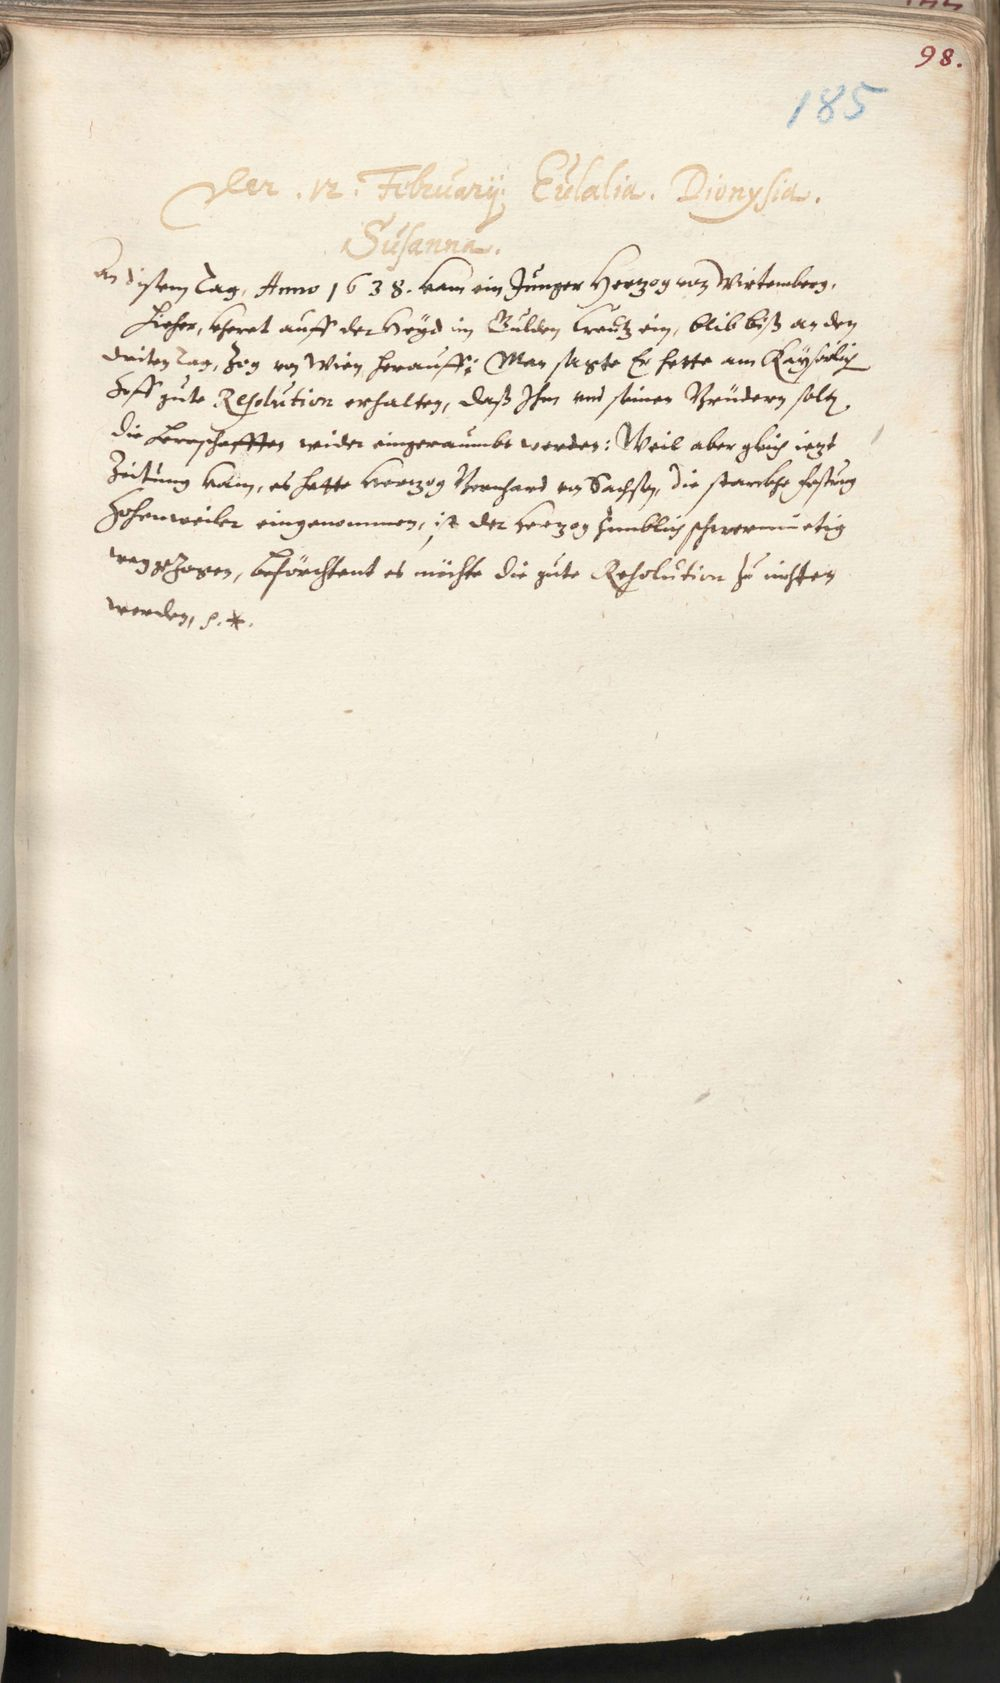 98.
185
Der .12. February. Eulalia. Dionysia.
Susanna.
An disem Tag, Anno 1638. kam ein Junger Hertzog von Wirtemberg,
hieher, kheret auff der Heyd im Gulden Creutz ein, blib biß an den
driten Tag, Zog von Wien herauff: Man sagte Er hette am Kayserlich
Hoff gute Resolution erhalten, daß Ihm und seinen Brüdern solten
die herrschafften wider eingeraumbt werden: Weil aber gleich ietzt
Zeitung kam, es hette Hertzog Bernhard von Sachsen, die starckhe Festung
Hohenweiler eingenommen, ist der Hertzog Zimblich schwermuetig
weggezogen, beförchtent es möchte die gute Resolution zu nichten
werden,